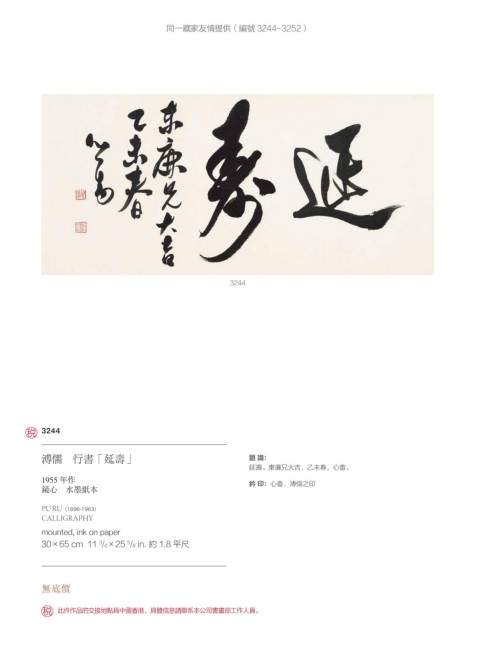 同一藏家友情提供（編號 3244-3252）
延壽
東廉兄大吉
乙未春
心畬
3244
税 3244
溥儒　行書「延壽」
1955 年作
鏡心　水墨紙本
PU RU (1896-1963)
CALLIGRAPHY
mounted, ink on paper
30 × 65 cm 11 3/4 × 25 5/8 in. 約 1.8 平尺
題識：
延壽。東廉兄大吉，乙未春，心畬。
鈐印：心畬，溥儒之印
無底價
税 此件作品的交接地點為中國香港，具體信息請聯系本公司書畫部工作人員。